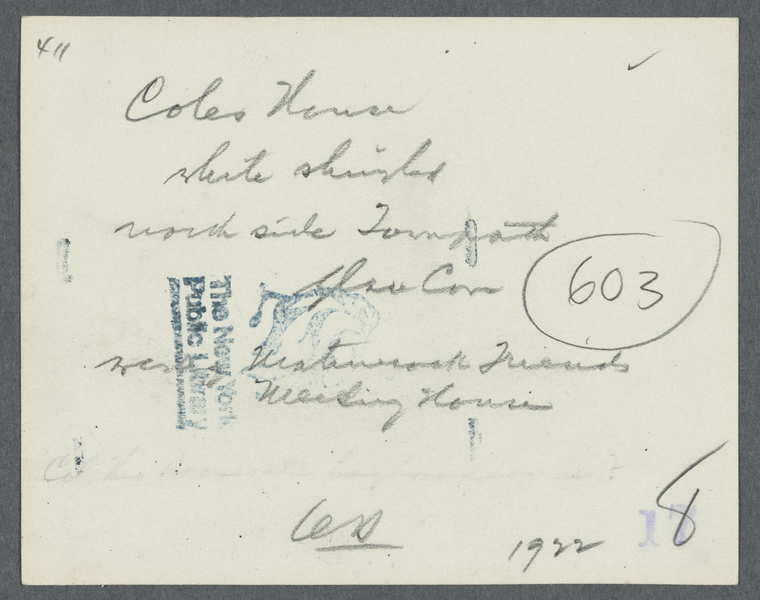 411
Coles House
white shingled
north side Townpath
Glen Cove
west of Matinecock Friends
Meeting House
603
The New York
Public Library
1922
17
8